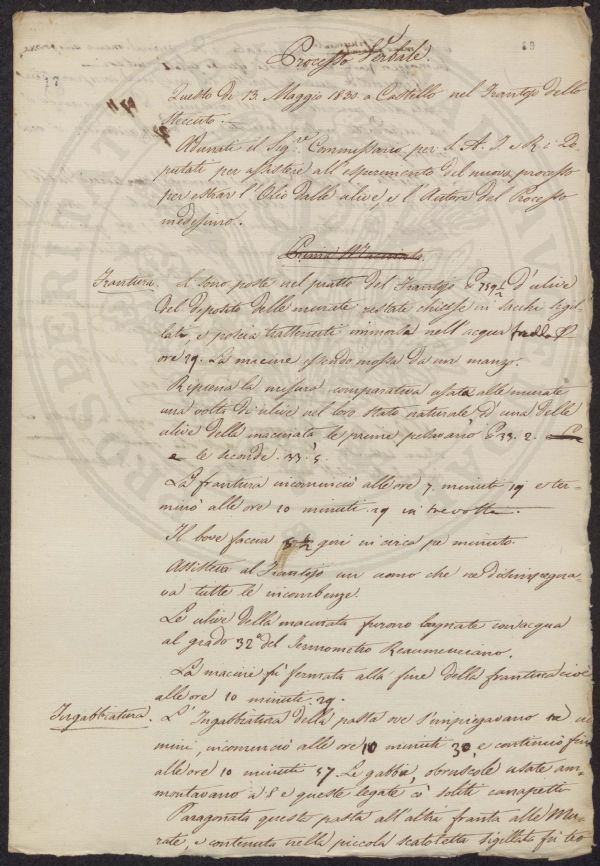 Processo Verbale.
Questo dì 13. Maggio 1830. a Castello nel Frantojo dello
Steccuto.
Adunati il Sig.re Commissario per S. A. I. e R. i De=
putati per assistere all'esperimento del nuovo processo
per estrar l'Olio dalle ulive, e l'Autore del Processo
medesimo.
Frantura. Si sono poste nel piatto del Frantojo 759 1/2 d'ulive
del deposito delle murate restate chiuse in sacchi sigil=
lati, e poscia trattenuti immersi nell'acqua fredda
ore 29. La macine essendo mossa da un manzo.
Ripiena la misura comparativa usata alle murate
una volta di ulive nel loro stato naturale e d'una delle
ulive della macinata le prime pesavano 33. 2.
e le seconde. 33. 5.
La frantura incominciò alle ore 7 minuti 19 e ter=
minò alle ore 10 minuti 29 in tre volte.
Il bove faceva 5 1/2 giri in circa per minuto.
Assisteva al Frantojo un uomo che ne disimpegna=
va tutte le incombenze.
Le ulive della macinata furono bagnate con acqua
al grado 32° del Termometro Reaumuriano.
La macine fu fermata alla fine della frantura cioè
alle ore 10 minuti 29.
Ingabbiatura. L'Ingabbiatura della pasta ove s'impiegavano tre uo
mini, incominciò alle ore 10 minuti 30, e continuò fino
alle ore 10 minuti 57. Le gabbie, o bruscole usate am=
montavano a 8 e queste legate coi soliti canapetti
Paragonata questa pasta all'altra franta alle Mu=
rate, e contenuta nella piccola scatoletta sigillata fu tro